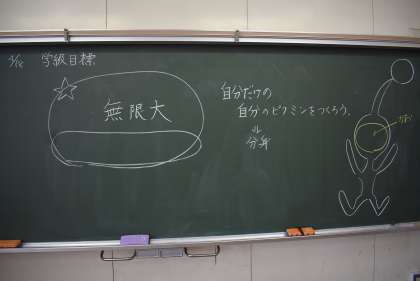 学級目標
無限大
自分だけの
自分のピクミンをつくろう。
分身